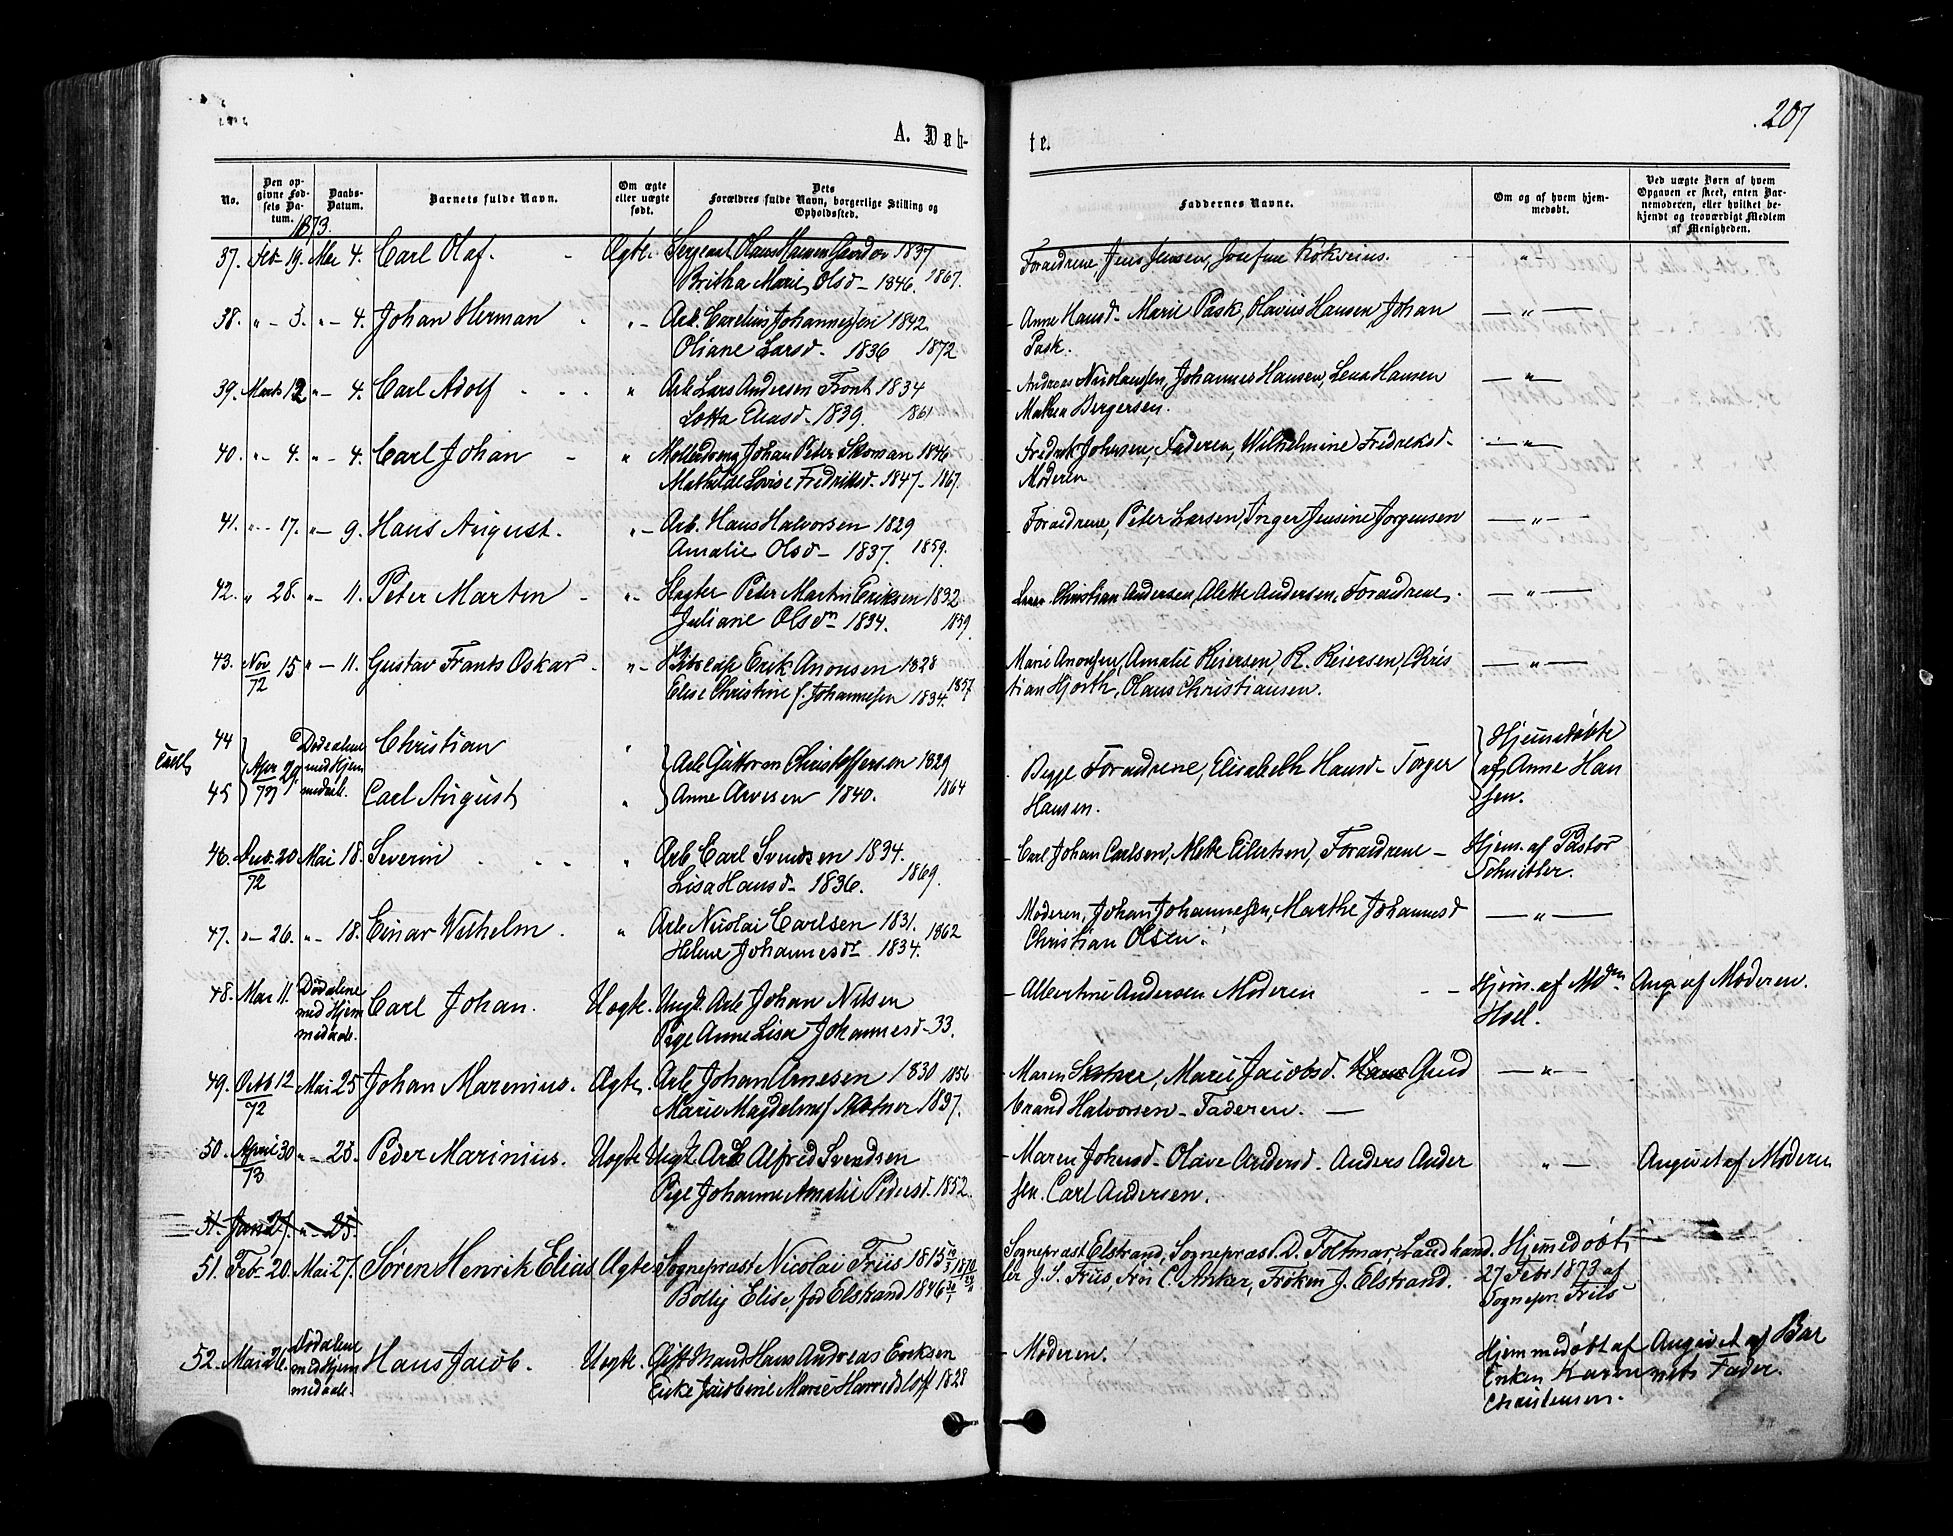 207
A. Døb-
te.
No.
Den op-
givne Fød-
sels Da-
tum.
Daabs-
Datum.
Barnets fulde Navn.
Om ægte
eller uægte
født.
Dets
Forældres fulde Navn, borgerlige Stilling og
Opholdssted.
Faddernes Navne.
Om og af hvem hjem-
medøbt.
Ved uægte Børn af hvem
Opgaven er skeet, enten Bar-
nemoderen, eller hvilket be-
kjendt og troværdigt Medlem
af Menigheden.
1873.
37. Feb 19. Mar 4. Carl Olaf. Ægte. Sergeant Olaus Hansen 1837 Forældrene, Jens Jensen, Josefine „
Britha Marie Olsd 1846. 1867.
38. „ - 5. „ - 4. Johan Herman „ - Arb. Carelius Johannessen 1842 Anne Hansd. Marie Pask, Olavus Hansen, Johan — „ —
Oliane Larsd. 1836 1872 Pask.
39. Marts 12 „ - 4. Carl Adolf „ Arb Lars Andersen Tront 1834 Andreas Nicolaussen, Johannes Hansen, Lena Hansen — „ —
Lotta Eliasd. 1839. 1861 Mathea Bergersen.
40. „ - 4. „ - 4. Carl Johan „ Johan Peter Skoman 1846 Fredrik Johnsen, Faderen, Wilhelmine Fredriksd. — „ —
Mathilde Lovise Fredriksd. 1847 - 1867. Moderen
41. „ - 17. „ - 9. Hans August. „ - Arb. Hans Halvorsen 1829 Forældrene, Peter Larsen, Inger Jensine Jørgensen — „ —
Amalie Olsd 1837. 1859.
42. „ 28. „ - 11. Peter Martin „ - Slagter Peter Martin Eriksen 1832 Christian Andersen, Alette Andersen, Forældrene. — „ —
Juliane Olsdn 1834. 1859.
43. Nov 15 „ - 11. Gustav Frants Oskar „ - Skibscap Erik Anonsen 1828 Marie Anonsen, Amalie Reiersen, R. Reiersen, Chris — „ —
72 Elise Christine f. Johannesen 1834. 1857 tian Hjorth, Olaus Christiansen.
44 Døbedalene Christian „ Hjemmedøbte
Tvill. Apr 29 med Hjem Arb Guttorm Christoffersen 1829 Begge Forældrene, Elisabeth Hansd. Torger af Anne Han
45 73 medaab. Carl August „ Anne Arvesen 1840. 1864 Hansen. sen.
46. Dec. 20 Mai 18. Severin „ Arb. Carl Svendsen 1834. Carl Johan Carlsen, Mette Eilertsen, Forældrene — Hjem. af Pastor
72 Lisa Hansd 1836. 1869. Schnitler.
47. „ - 26. „ - 18. Einar Wilhelm. „ Arb Nicolai Carlsen 1831. Moderen, Johan Johannesen, Marthe Johannesd — „ —
Helene Johannesdr 1834. 1862 Christian Olsen.
48. Mar 11. Døbdalene Carl Johan. Uægte. Ungk. Arb Johan Nilsen Albertine Andersen Moderen Hjem. af Mden Ang. af Moderen.
med Hjem Pige Anne Lisa Johannesd. 33. Hoel.
medaab.
49. Octb 12 Mai 25 Johan Marenius. Ægte Arb Johan Arnesen 1830 1856 Maren Skotner, Marie Jacobsd. Gund — „ —
72 Marie Magdalene f Skotner 1837. brand Halvorsen - Faderen.
50. April 30 „ - 25. Peder Marinius. Uægte Ungk Arb Alfred Svendsen Maren Johnsd. Olave Andersd. Anders Ander „ — Angivet af Moderen
73 Pige Johanne Amalie Pedersd. 1852. sen. Carl Andersen.
51. Jan 27. „ - 25.
51. Feb 20. Mai 27. Søren Henrik Elias Ægte Sognepræst Nicolai Friis 1815 Sogneprest Elstrand, Sogneprest D. Landhand. Hjemmedøbt
Bolly Elise, fød Elstrand 1846 ler J. S. Friis, Frøi C. Anker, Frøken J. Elstrand. 27 Febr 1873 af
Sognepr. Friis
52. Mai 26. Døbdalene Hans Jacob. Uægte. Gift Mand Hans Andreas Eriksen Moderen. Hjemmedøbt af Angivet af Bar
med Hjem Enke Jacobine Marie 1828 Enken Karen nets Fader.
medaab. Christensen.